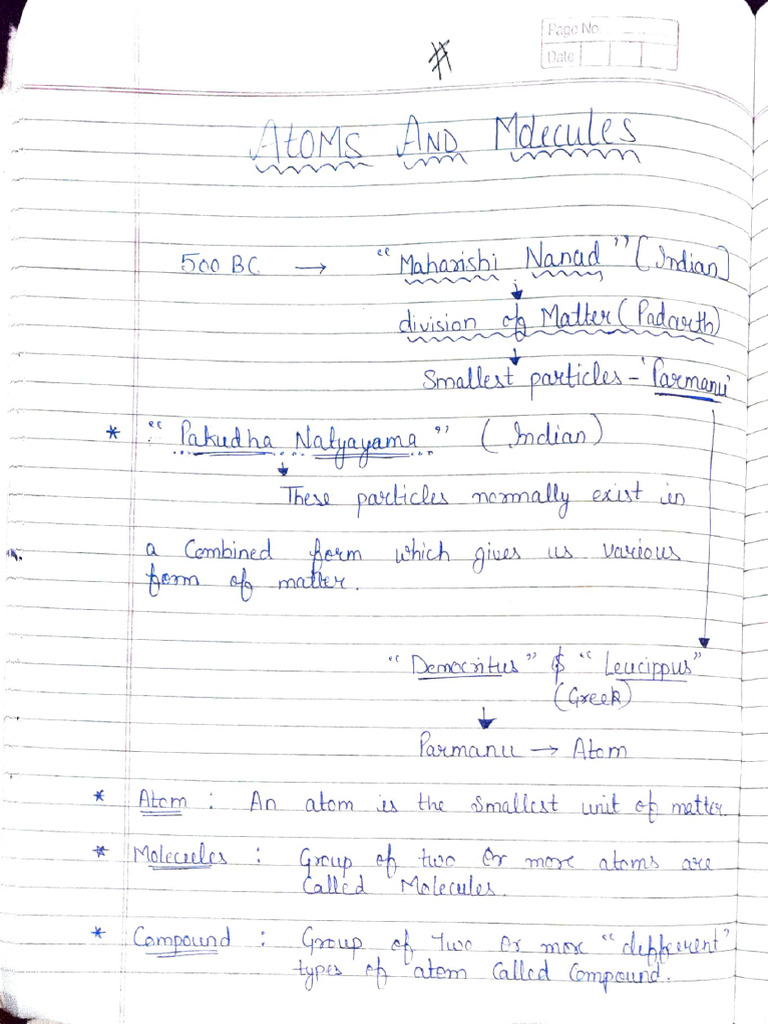 Page No
Date
#
ATOMS AND MOLECULES
500 BC → "Maharishi Nanad" (Indian)
division of Matter (Padarth)
Smallest particles - 'Parmanu'
* "Pakudha Natyayama" (Indian)
These particles normally exist in
a Combined form which gives us various
form of matter.
"Democritus" & "Leucippus"
(Greek)
Parmanu → Atom
* Atom : An atom is the smallest unit of matter.
* Molecules : Group of two or more atoms are
Called Molecules.
* Compound : Group of two or more "defferent"
types of atom Called Compound.